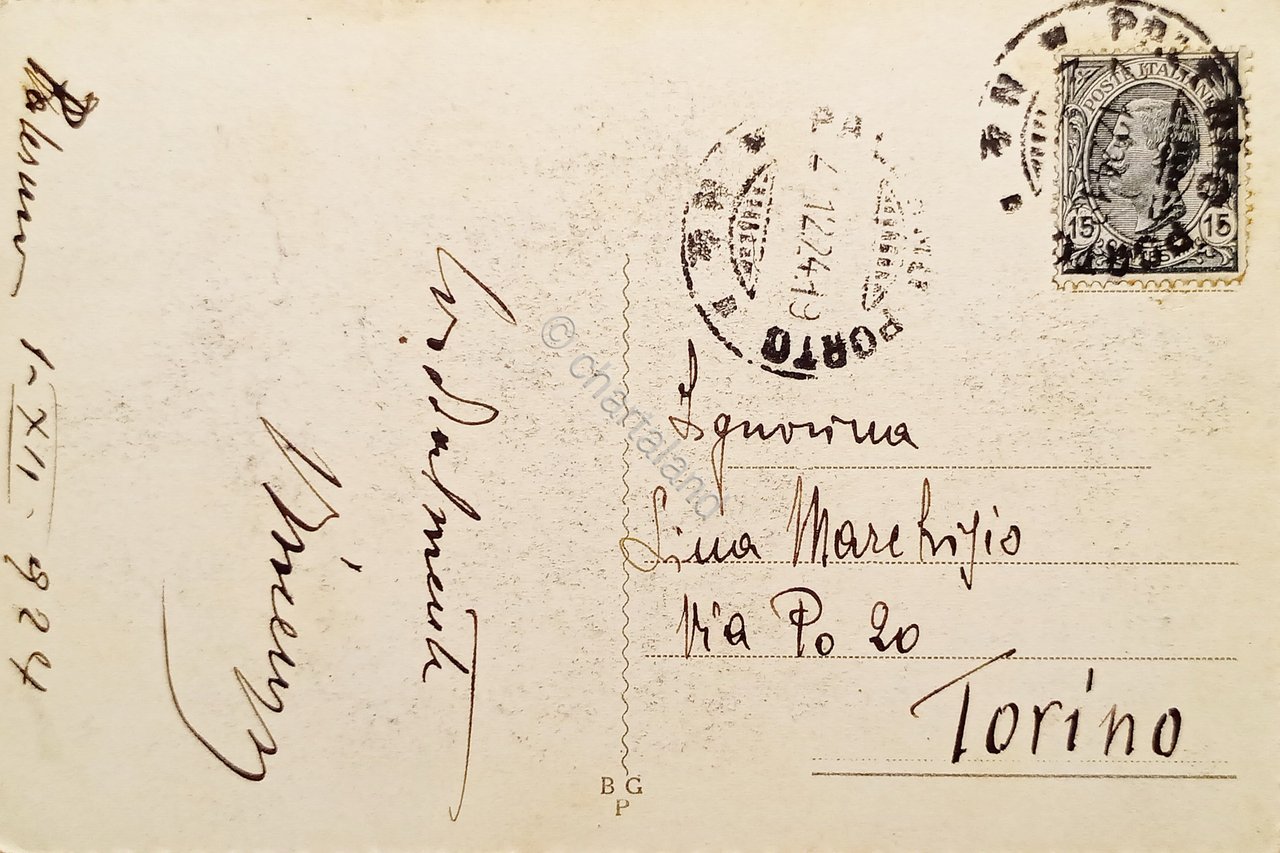 Palermo 1-XII-924
Cordialmente
Vincenzo
Signorina
Lina Marchisio
Via Po 20
Torino
POSTE ITALIANE
15 15
CENT.
2.12.24.19
PORTO
B G
P
© chartaland